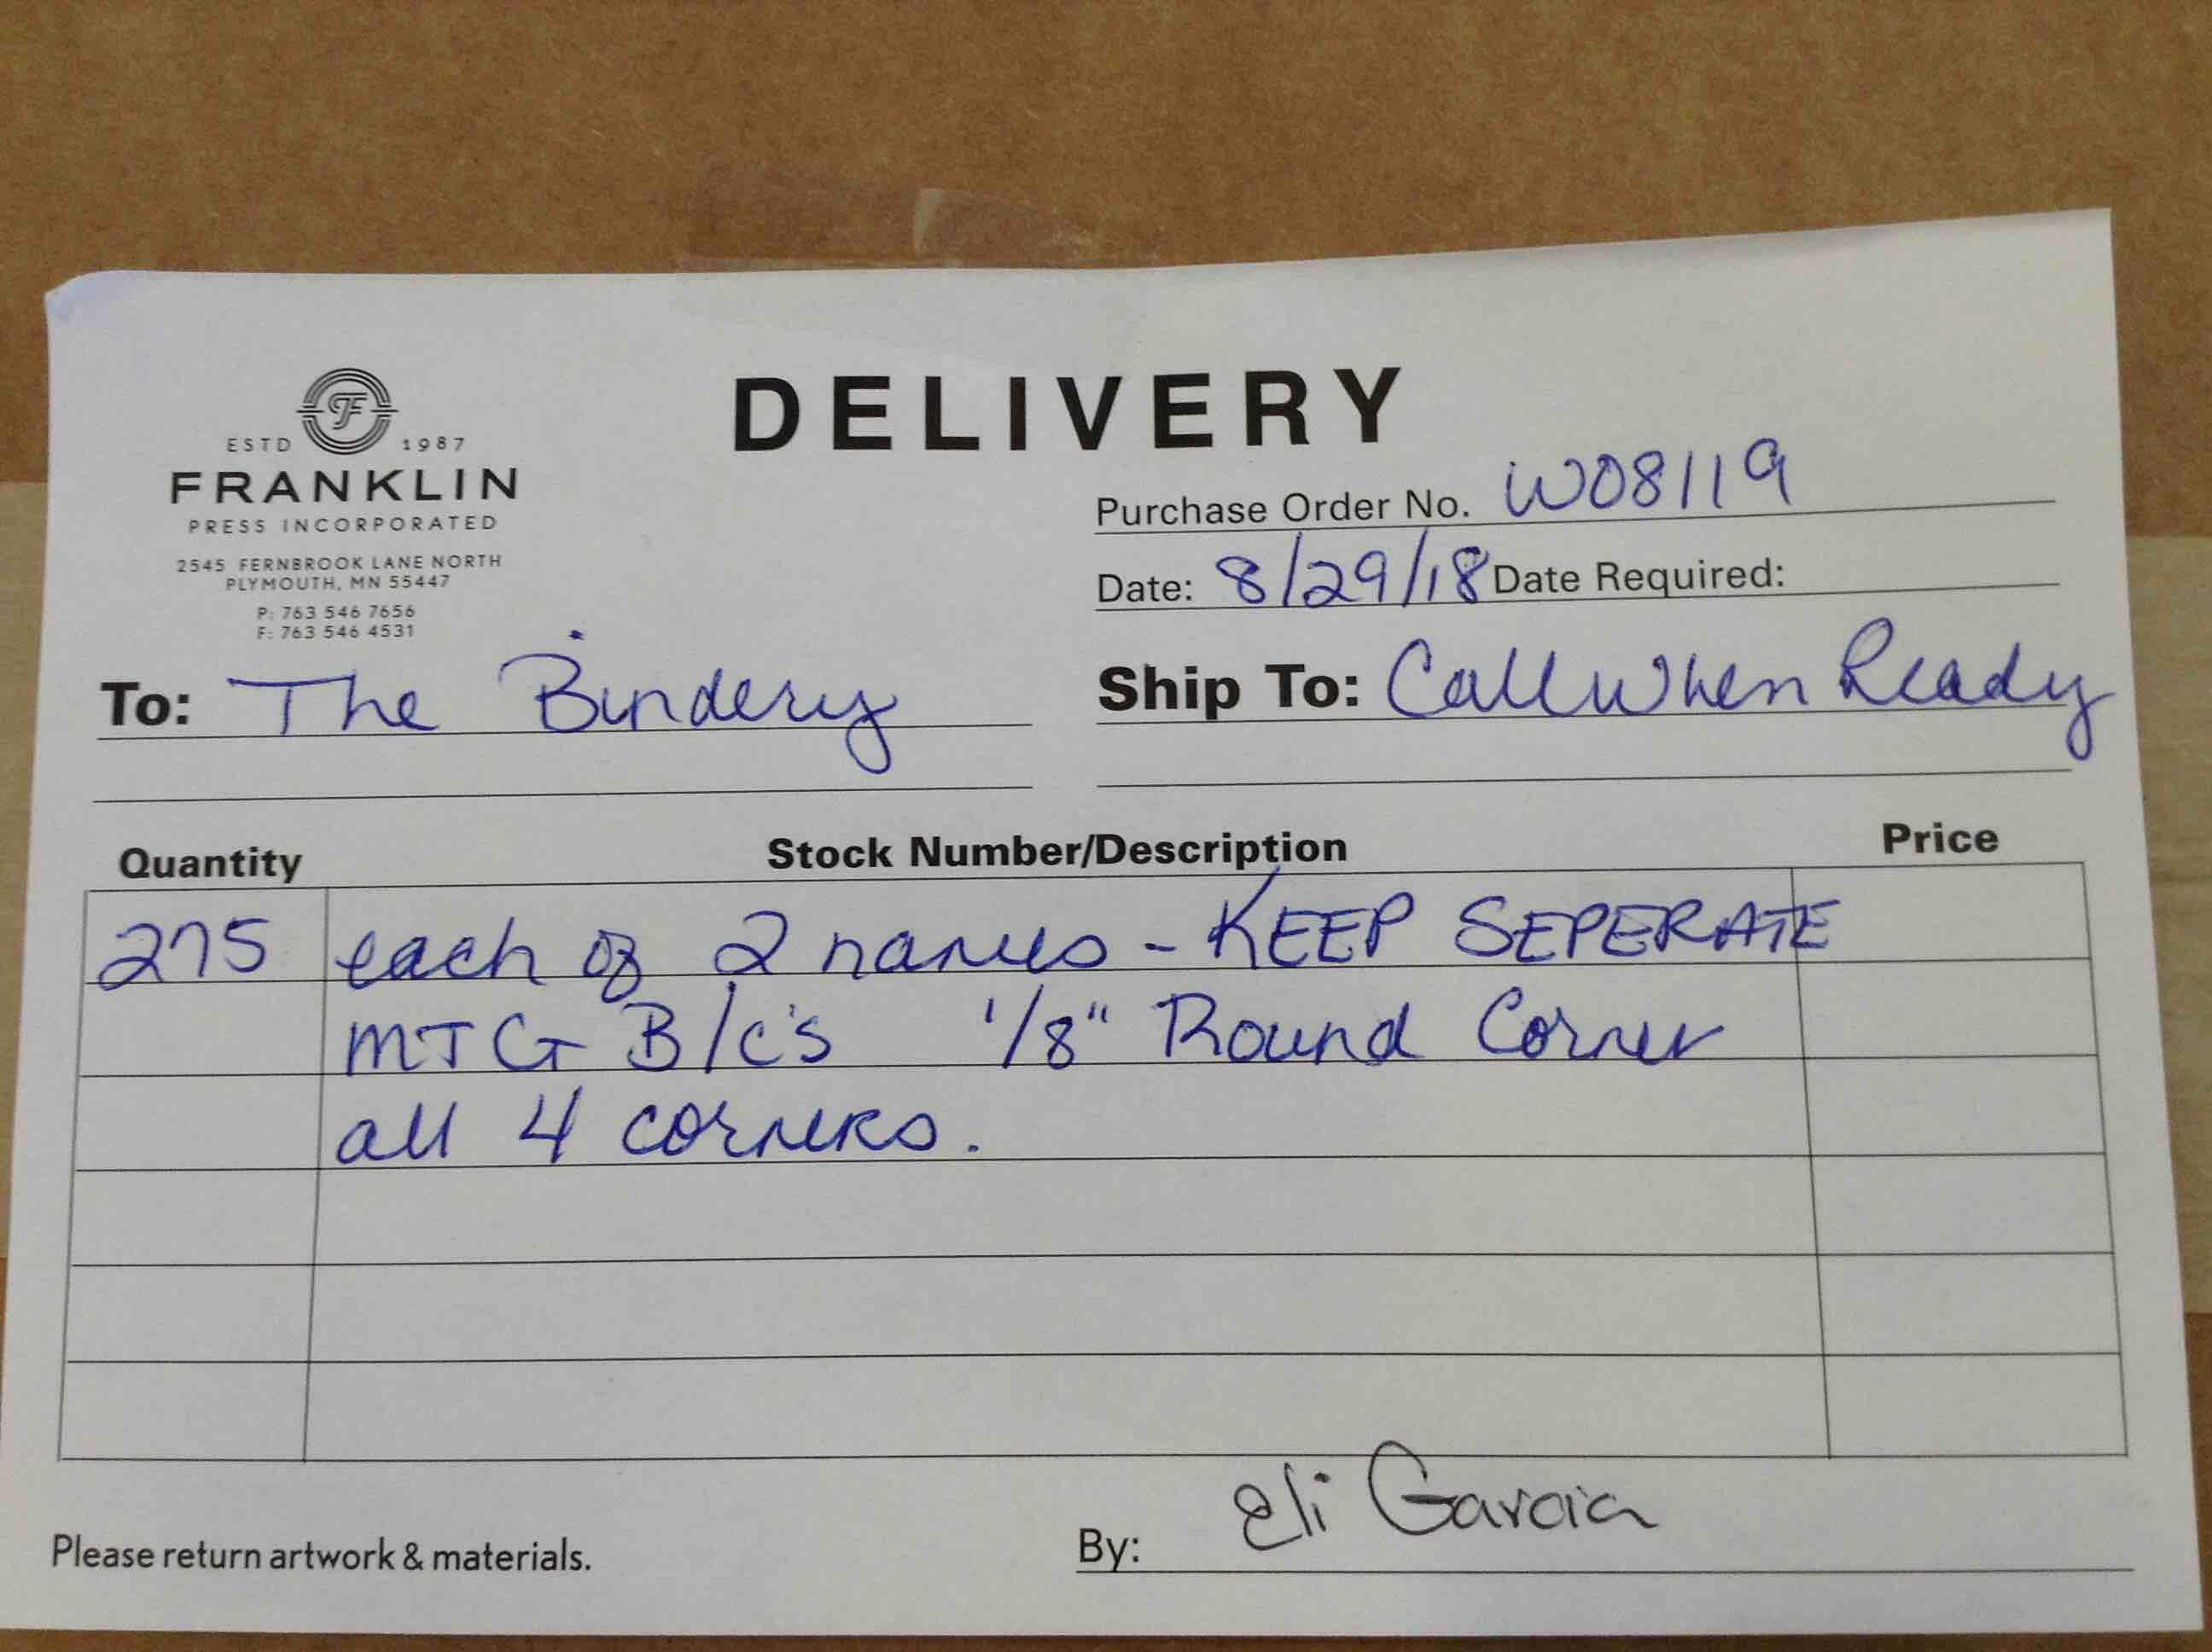 DELIVERY
ESTD 1987
FRANKLIN
PRESS INCORPORATED
2545 FERNBROOK LANE NORTH
PLYMOUTH, MN 55447
P: 763 546 7656
F: 763 546 4531
Purchase Order No. W08119
Date: 8/29/18 Date Required:
To: The Bindery
Ship To: Call When Ready
Quantity Stock Number/Description Price
275 each of 2 names - KEEP SEPERATE
MTG B/c's 1/8" Round Corner
all 4 corners.
Please return artwork & materials.
By: Eli Garcia